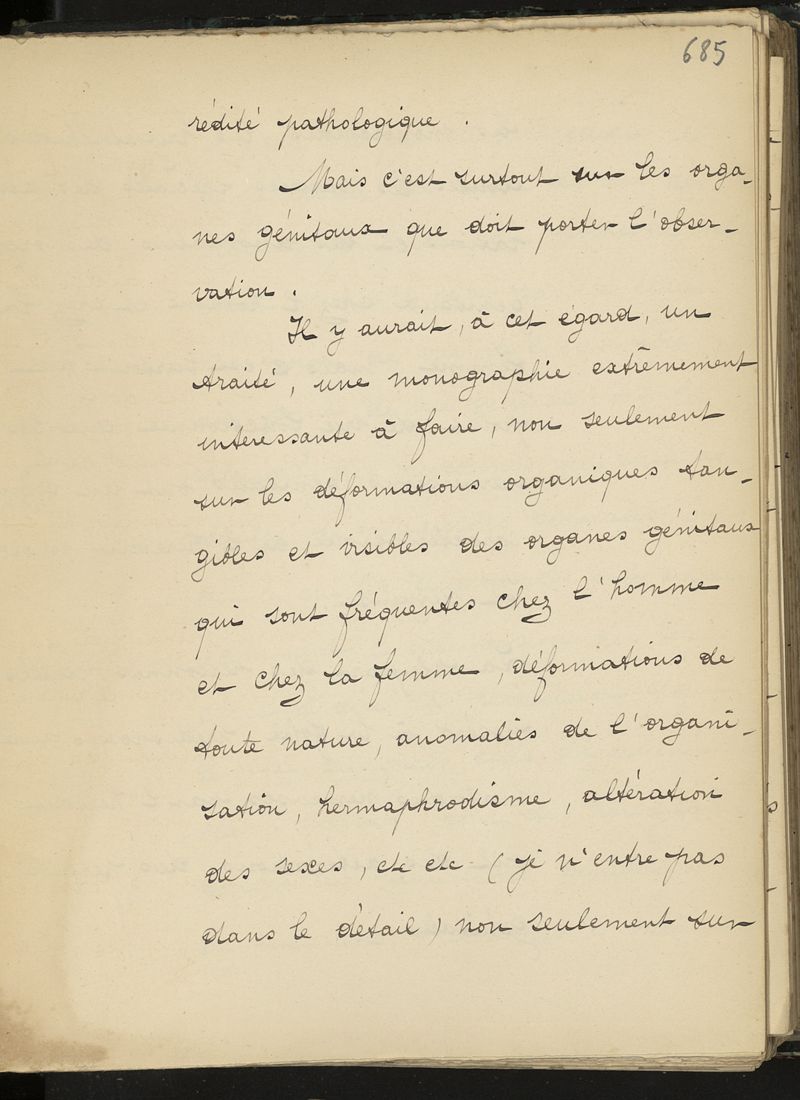 685
rédité pathologique .
Mais c'est surtout sur les orga-
nes génitaux que doit porter l'obser-
vation .
Il y aurait, à cet égard, un
traité, une monographie extrêmement
intéressante à faire, non seulement
sur les déformations organiques tan-
gibles et visibles des organes génitaux
qui sont fréquentes chez l'homme
et chez la femme, déformations de
toute nature, anomalies de l'organi-
sation, hermaphrodisme, altération
des sexes, etc etc (je n'entre pas
dans le détail) non seulement sur